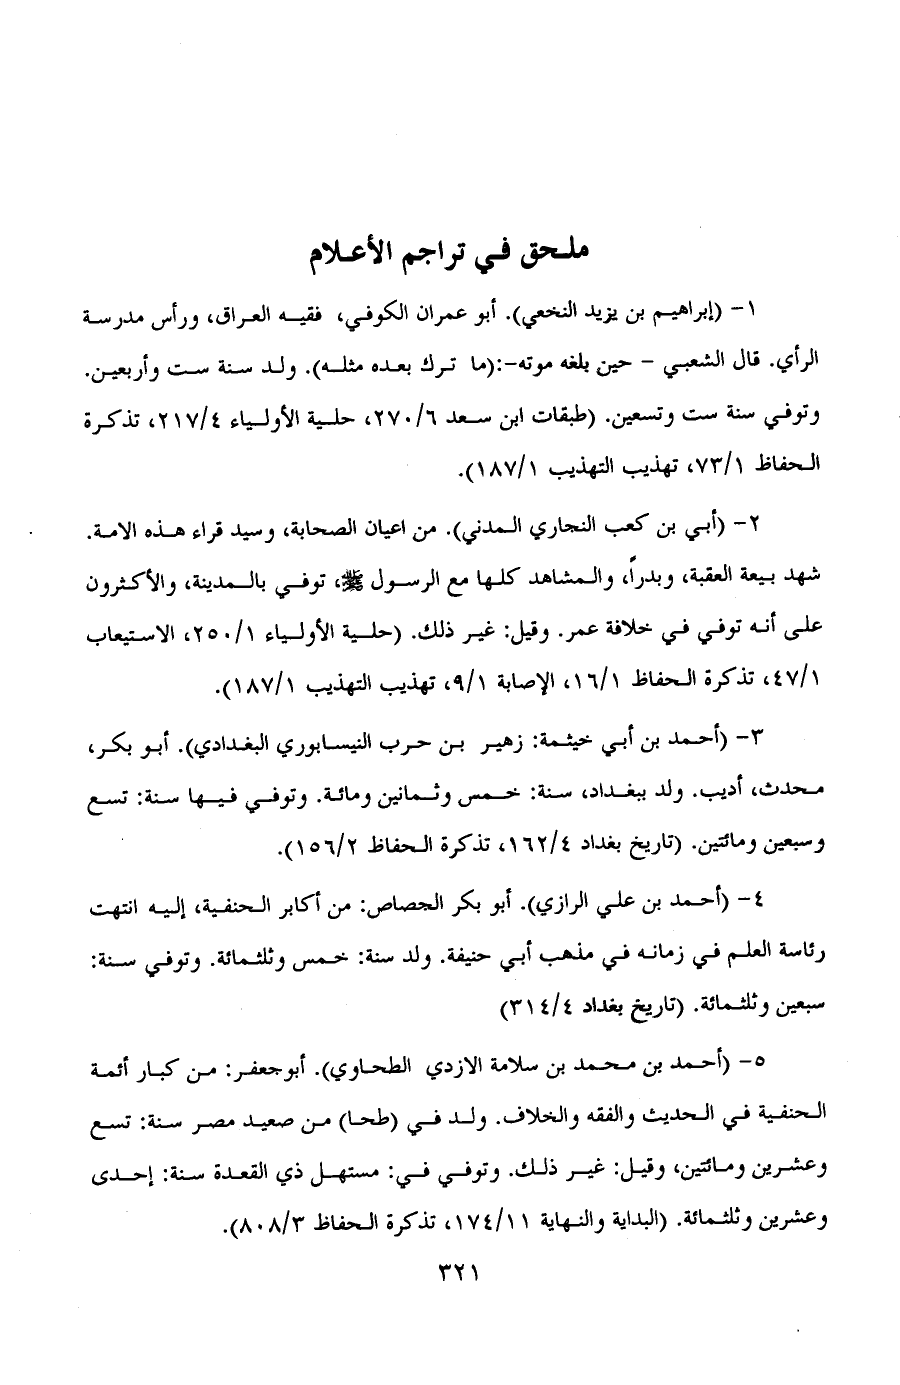 ملحق في تراجم الأعلام
١- (إبراهيم بن يزيد النخعي). أبو عمران الكوفي، فقيه العراق، ورأس مدرسة
الرأي. قال الشعبي - حين بلغه موته-:(ما ترك بعده مثله). ولد سنة ست وأربعين.
وتوفي سنة ست وتسعين. (طبقات ابن سعد ٢٧٠/٦، حلية الأولياء ٢١٧/٤، تذكرة
الحفاظ ٧٣/١، تهذيب التهذيب ١٨٧/١).
٢- (أبي بن كعب النجاري المدني). من اعيان الصحابة، وسيد قراء هذه الامة.
شهد بيعة العقبة، وبدراً، والمشاهد كلها مع الرسول ﷺ، توفي بالمدينة، والأكثرون
على أنه توفي في خلافة عمر. وقيل: غير ذلك. (حلية الأولياء ٢٥٠/١، الاستيعاب
٤٧/١، تذكرة الحفاظ ١٦/١، الإصابة ٩/١، تهذيب التهذيب ١٨٧/١).
٣- (أحمد بن أبي خيثمة: زهير بن حرب النيسابوري البغدادي). أبو بكر،
محدث، أديب. ولد ببغداد، سنة: خمس وثمانين ومائة. وتوفي فيها سنة: تسع
وسبعين ومائتين. (تاريخ بغداد ١٦٢/٤، تذكرة الحفاظ ١٥٦/٢).
٤- (أحمد بن علي الرازي). أبو بكر الجصاص: من أكابر الحنفية، إليه انتهت
رئاسة العلم في زمانه في مذهب أبي حنيفة. ولد سنة: خمس وثلثمائة. وتوفي سنة:
سبعين وثلثمائة. (تاريخ بغداد ٣١٤/٤)
٥- (أحمد بن محمد بن سلامة الازدي الطحاوي). أبوجعفر: من كبار أئمة
الحنفية في الحديث والفقه والخلاف. ولد في (طحا) من صعيد مصر سنة: تسع
وعشرين ومائتين، وقيل: غير ذلك. وتوفي في: مستهل ذي القعدة سنة: إحدى
وعشرين وثلثمائة. (البداية والنهاية ١٧٤/١١، تذكرة الحفاظ ٨٠٨/٣).
٣٢١